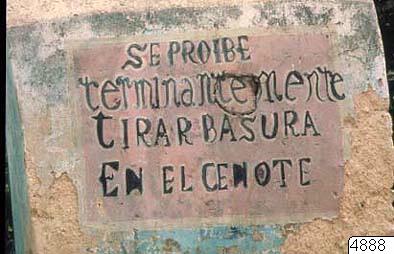 SE PROIBE
terminantemente
TIRAR BASURA
EN EL CENOTE
4888